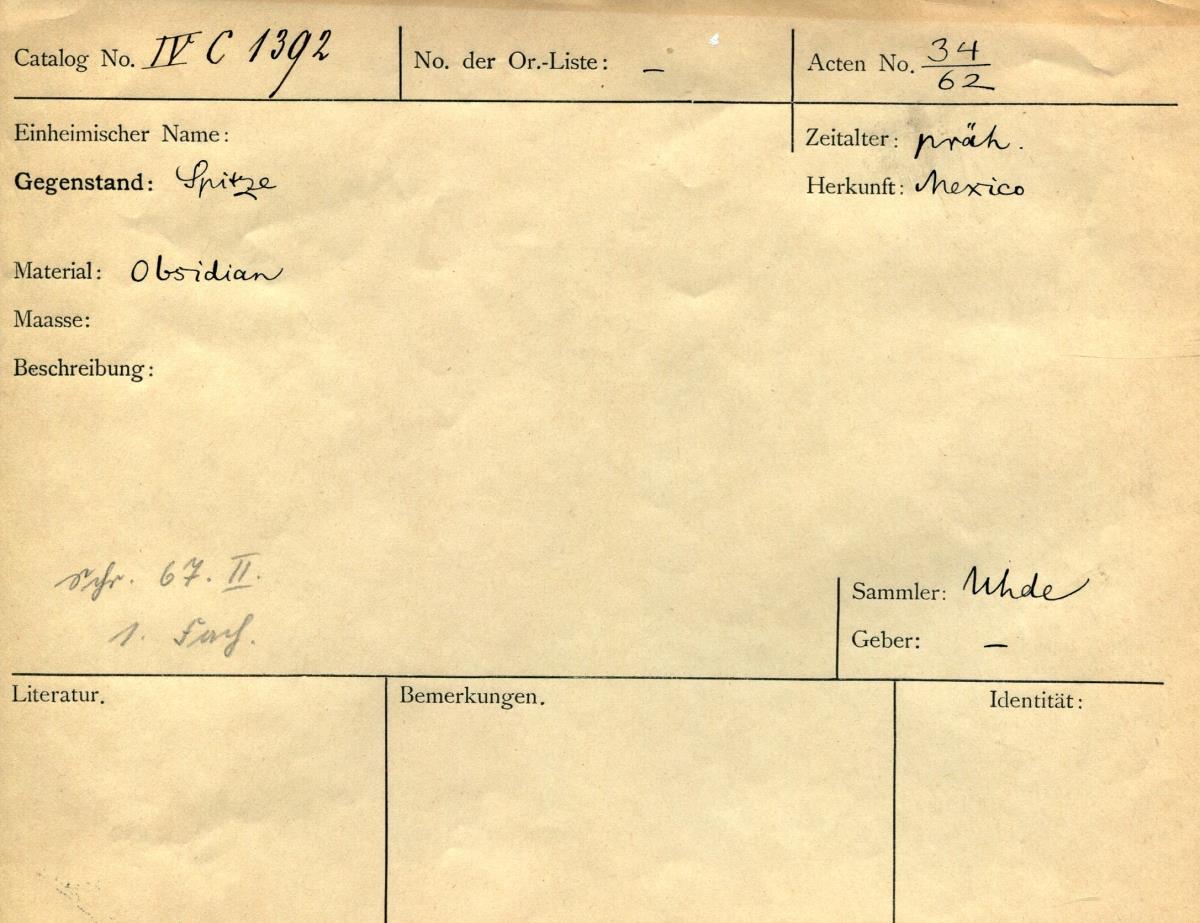 Catalog No. IV C 1392
No. der Or.-Liste: –
Acten No. 34/62
Einheimischer Name:
Zeitalter: präh.
Gegenstand: Spitze
Herkunft: Mexico
Material: Obsidian
Maasse:
Beschreibung:
Schr. 67. II.
1. Fach.
Sammler: Uhde
Geber: –
Literatur.
Bemerkungen.
Identität: